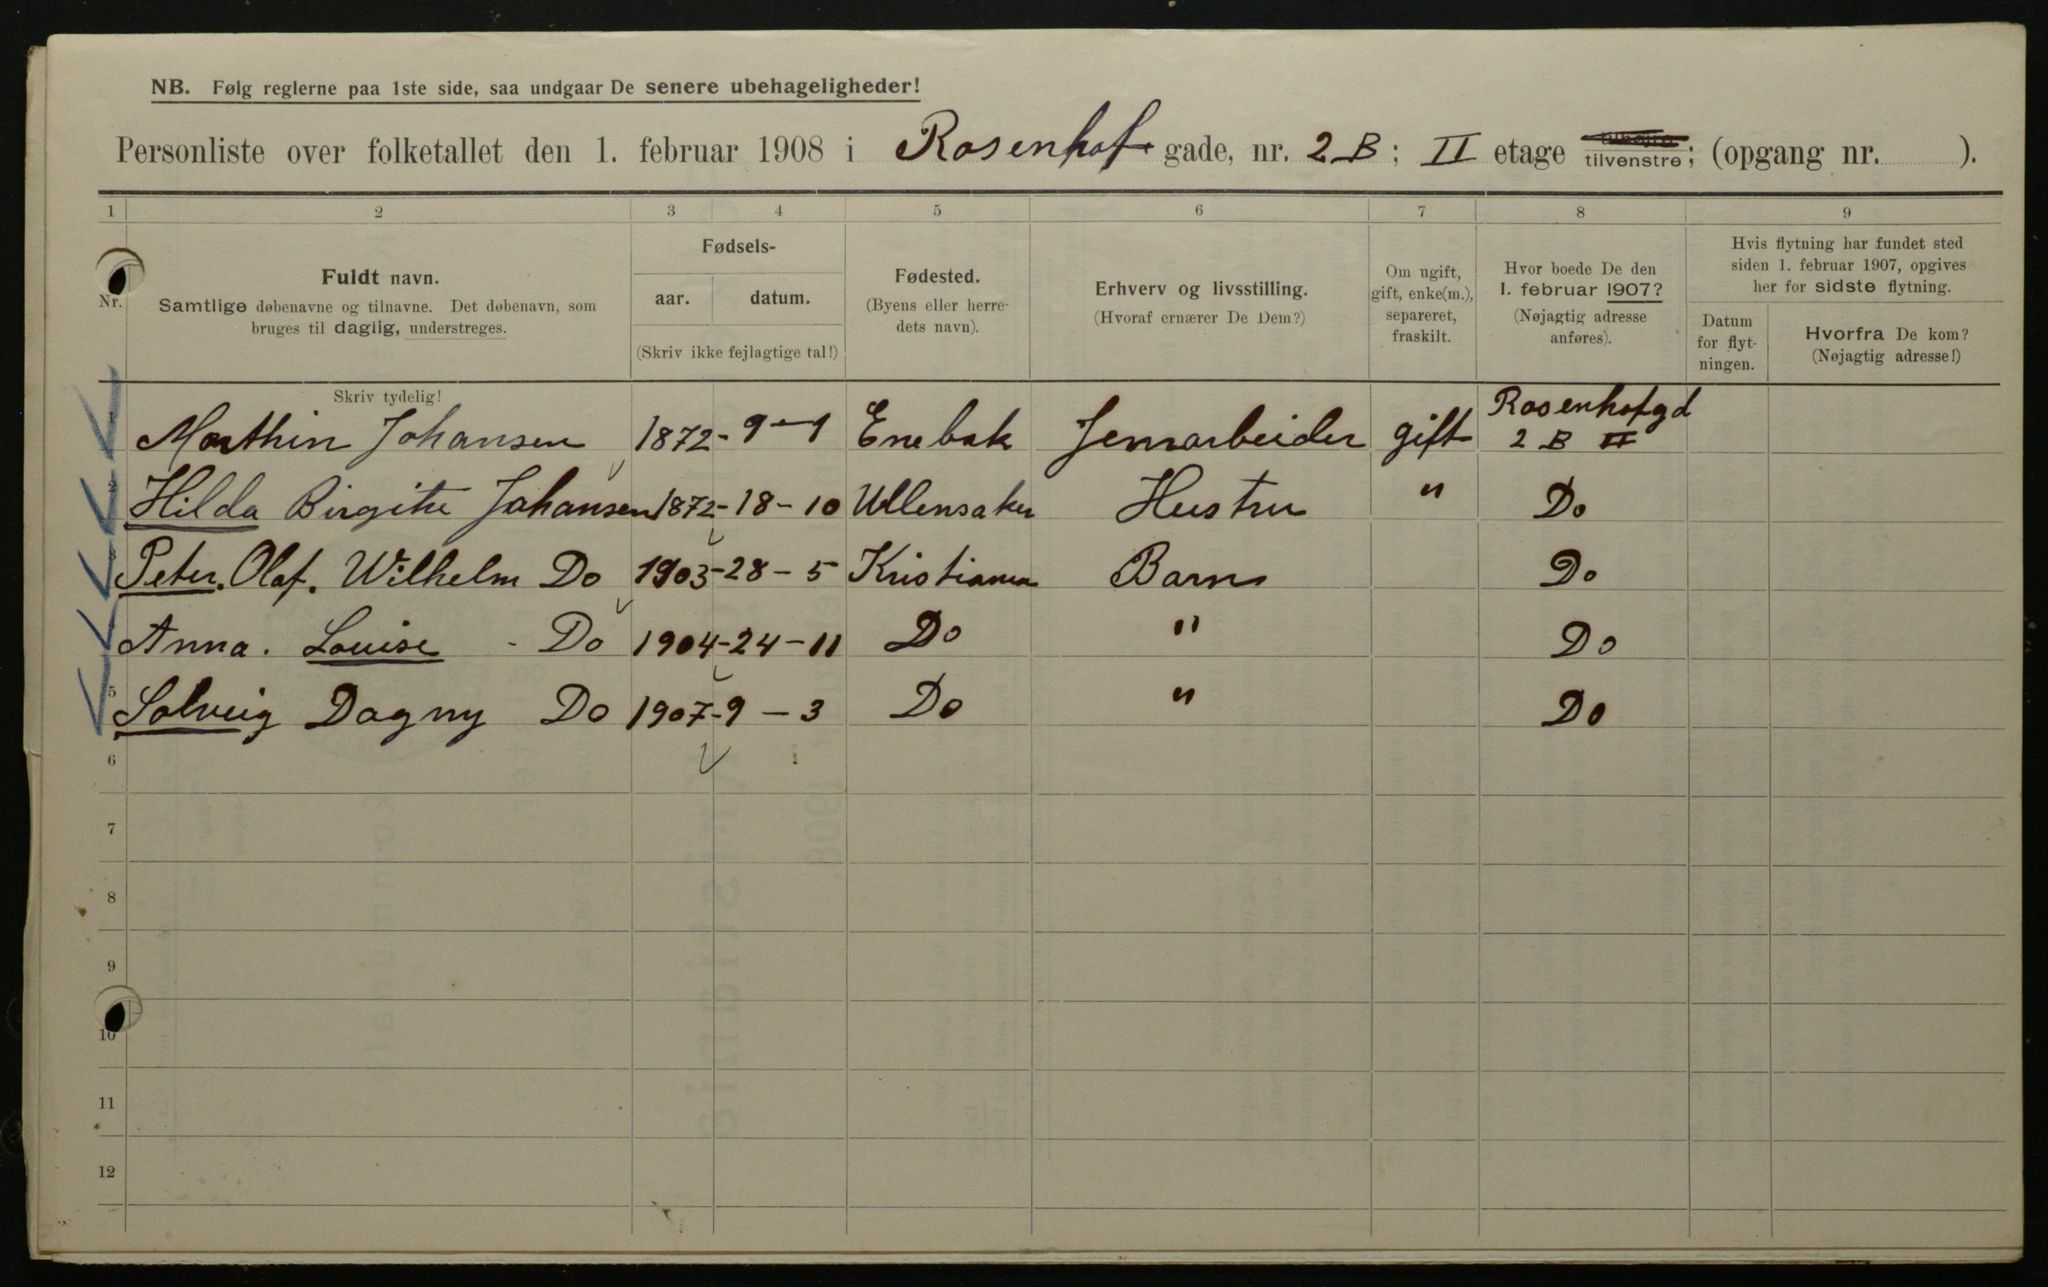 NB. Følg reglerne paa 1ste side, saa undgaar De senere ubehageligheder!
Personliste over folketallet den 1. februar 1908 i Rosenhof gade, nr. 2 B; II etage tilvenstre; (opgang nr. ).
1 2 3 4 5 6 7 8 9
Nr.
Fuldt navn.
Samtlige døbenavne og tilnavne. Det døbenavn, som
bruges til daglig, understreges.
Fødsels-
aar. datum.
(Skriv ikke fejlagtige tal!)
Fødested.
(Byens eller herre-
dets navn).
Erhverv og livsstilling.
(Hvoraf ernærer De Dem?)
Om ugift,
gift, enke(m.),
separeret,
fraskilt.
Hvor boede De den
1. februar 1907?
(Nøjagtig adresse
anføres).
Hvis flytning har fundet sted
siden 1. februar 1907, opgives
her for sidste flytning.
Datum
for flyt-
ningen.
Hvorfra De kom?
(Nøjagtig adresse!)
Skriv tydelig!
1 Marthin Johansen 1872-9-1 Enebak Jernarbeider gift Rosenhofgd
2 B II
2 Hilda Birgitte Johansen 1872-18-10 Ullensaker Hustru " Do
3 Peter. Olaf. Wilhelm Do 1903-28-5 Kristiania Barn Do
4 Anna. Louise - Do 1904-24-11 Do " Do
5 Solveig Dagny Do 1907-9-3 Do " Do
6
7
8
9
10
11
12